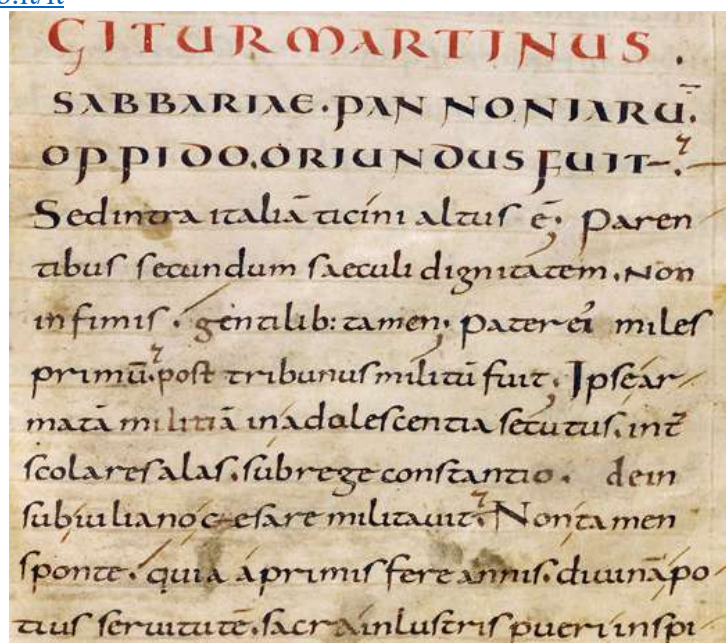 GITUR MARTINUS .
SABBARIAE. PANNONIARŪ.
OPPIDO. ORIUNDUS FUIT.
Sed intra italiā ticini altus ē; Paren
tibus secundum saeculi dignitatem. Non
infimis. gentilib: tamen; Pater ei miles
primū. post tribunus militū fuit; Ipse ar
matā militiā in adolescentia secutus. int̄
scolares alas. sub rege constantio. dein
sub iuliano caesare militauit. Non tamen
sponte. quia a primis fere annis. diuinā po
tius seruitutē. sacra inlustris pueri inspi